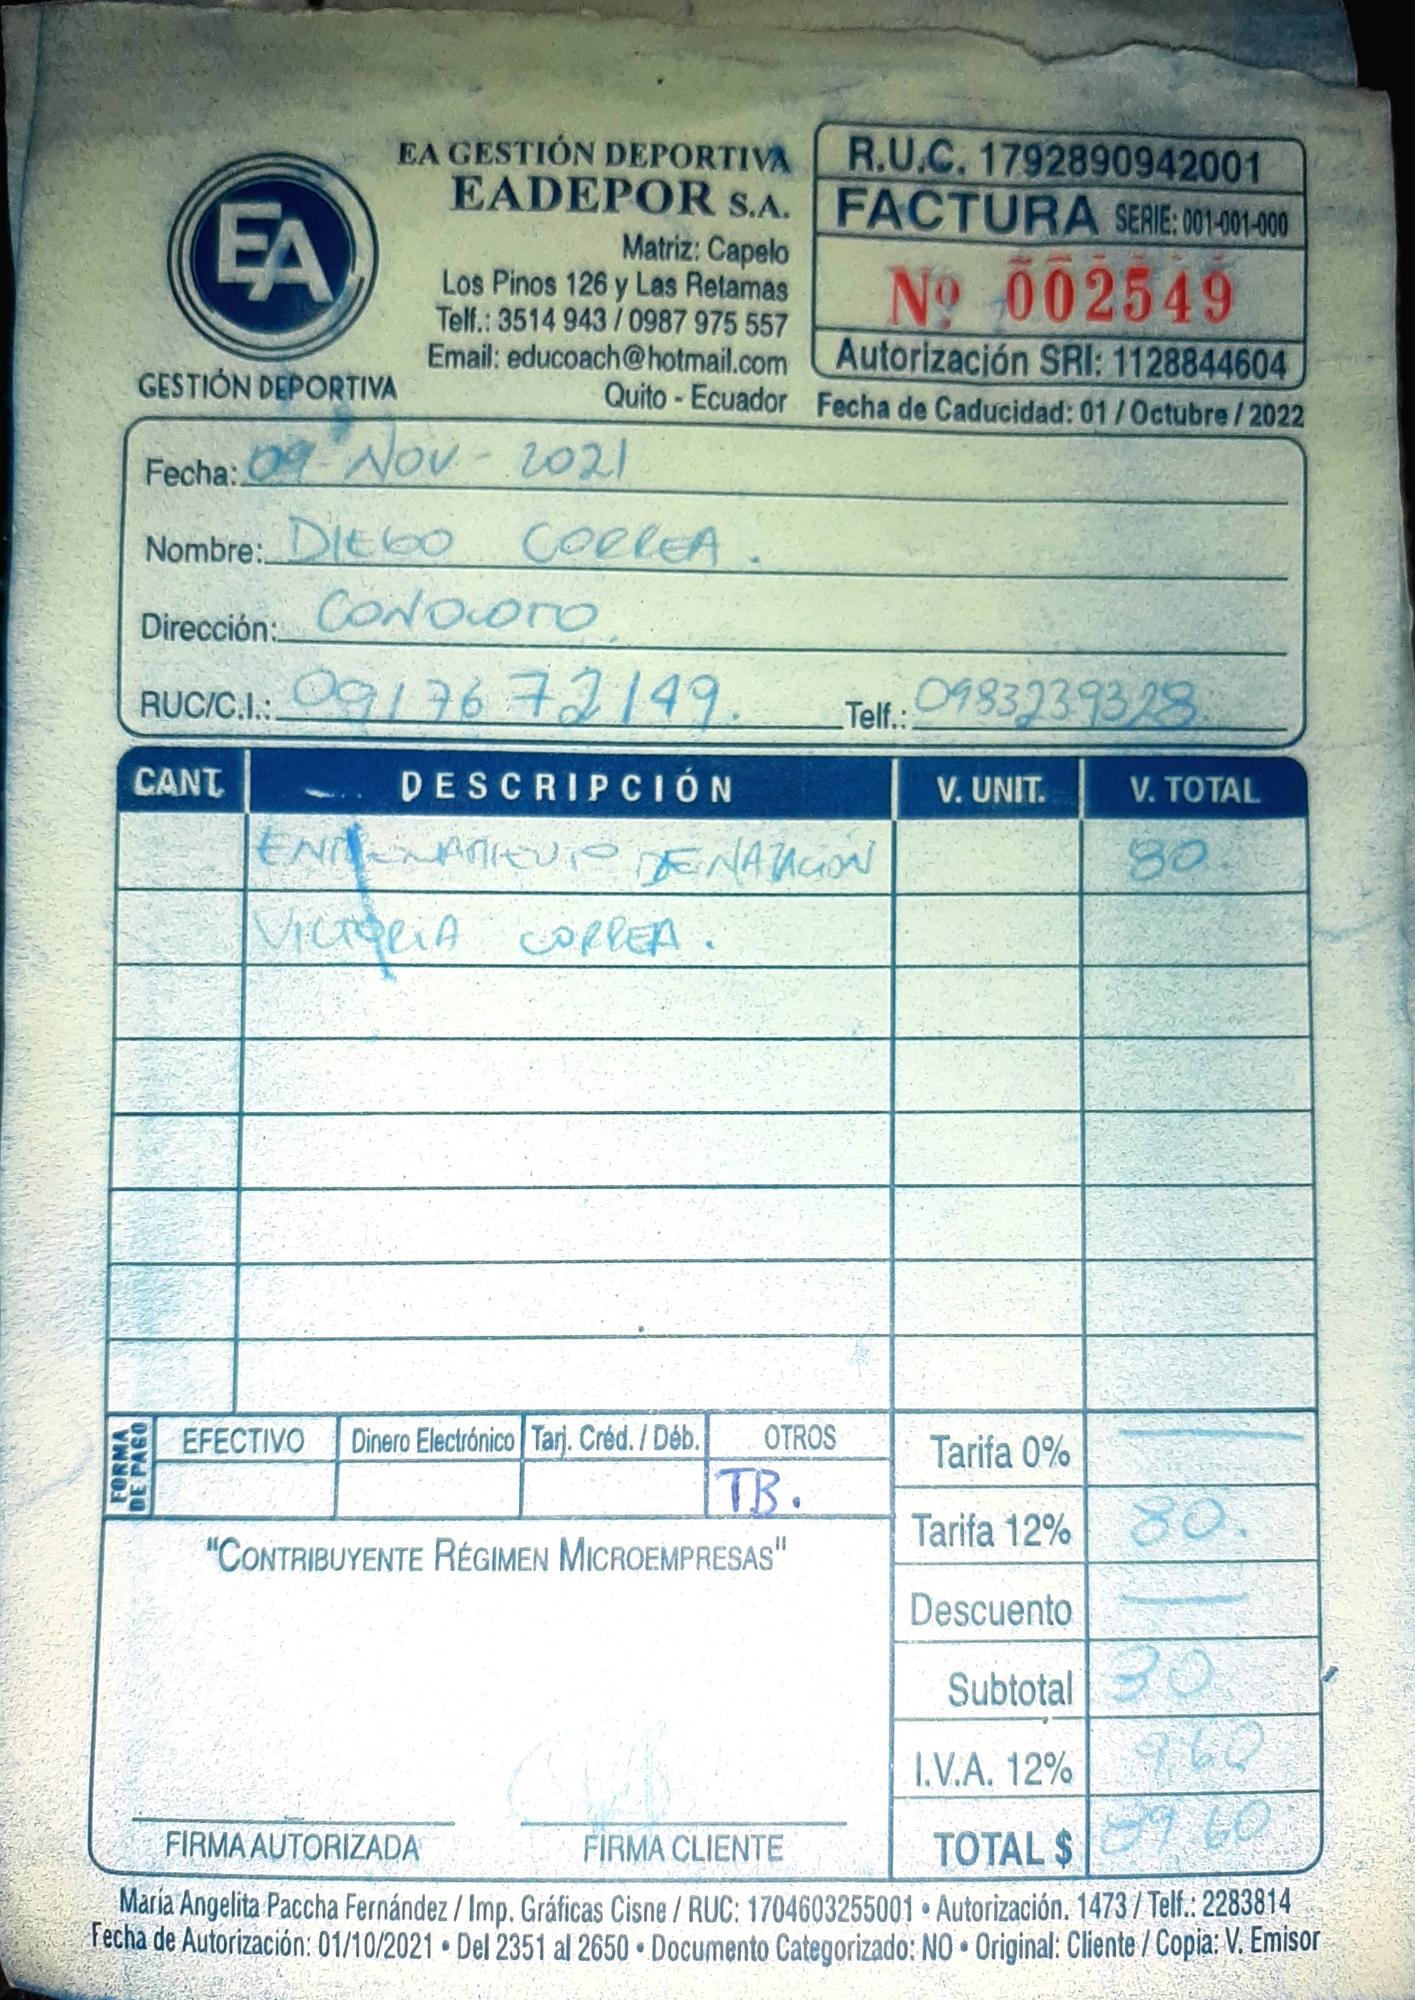 EA
GESTIÓN DEPORTIVA
EA GESTIÓN DEPORTIVA
EADEPOR S.A.
Matriz: Capelo
Los Pinos 126 y Las Retamas
Telf.: 3514 943 / 0987 975 557
Email: educoach@hotmail.com
Quito - Ecuador
R.U.C. 1792890942001
FACTURA SERIE: 001-001-000
Nº 002549
Autorización SRI: 1128844604
Fecha de Caducidad: 01 / Octubre / 2022
Fecha: 09 - NOV - 2021
Nombre: DIEGO CORREA.
Dirección: CONOCOTO
RUC/C.I.: 0917672149. Telf.: 0983239328
CANT. DESCRIPCIÓN V. UNIT. V. TOTAL
ENTRENAMIENTO DE NATACIÓN 80
VICTORIA CORREA.
FORMA DE PAGO
EFECTIVO Dinero Electrónico Tarj. Créd. / Déb. OTROS
TB.
Tarifa 0% —
Tarifa 12% 80.
Descuento —
Subtotal 80
I.V.A. 12% 9.60
TOTAL $ 89.60
"CONTRIBUYENTE RÉGIMEN MICROEMPRESAS"
FIRMA AUTORIZADA FIRMA CLIENTE
María Angelita Paccha Fernández / Imp. Gráficas Cisne / RUC: 1704603255001 • Autorización. 1473 / Telf.: 2283814
Fecha de Autorización: 01/10/2021 • Del 2351 al 2650 • Documento Categorizado: NO • Original: Cliente / Copia: V. Emisor